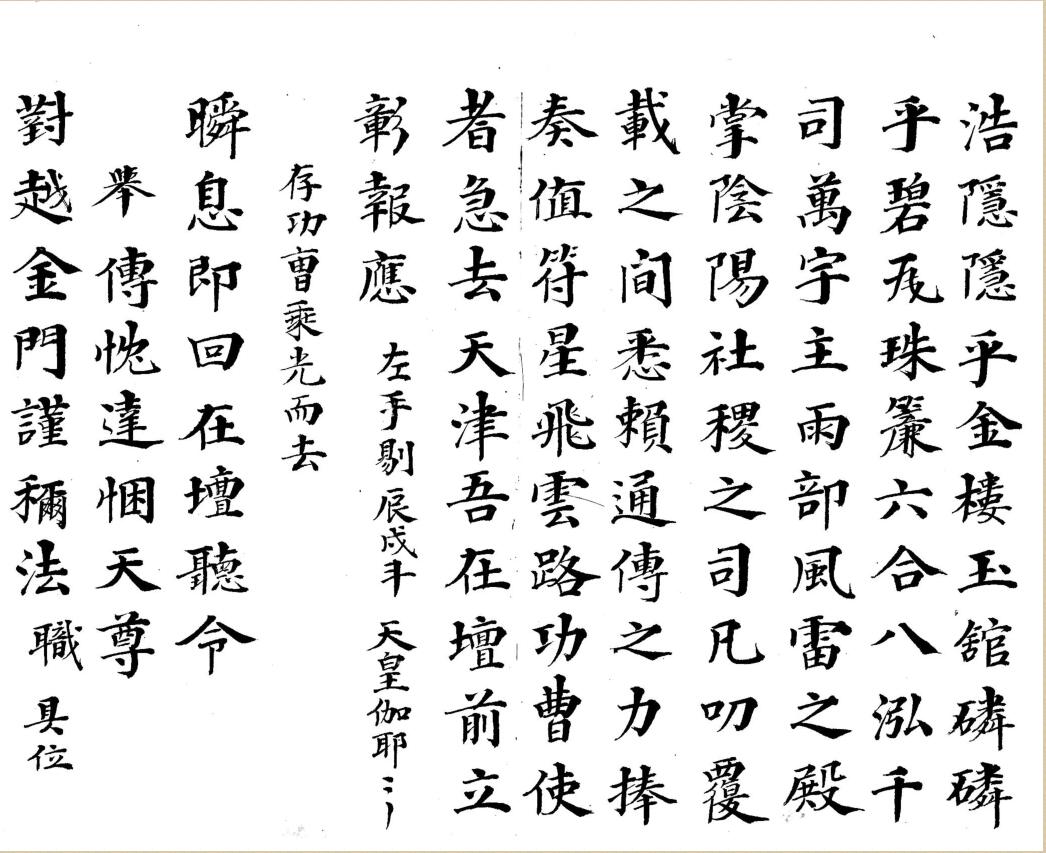 浩隱隱乎金樓玉舘磷磷
乎碧瓦珠簾六合八泓千
司萬宇主雨部風雷之殿
掌陰陽社稷之司凡叨覆
載之間悉賴通傳之力捧
奏值符星飛雲路功曹使
者急去天津吾在壇前立
彰報應 左手剔辰戌斗 天皇伽耶
存功曹乘光而去
瞬息即回在壇聽令
舉傳忱達悃天尊
對越金門謹稱法職 具位